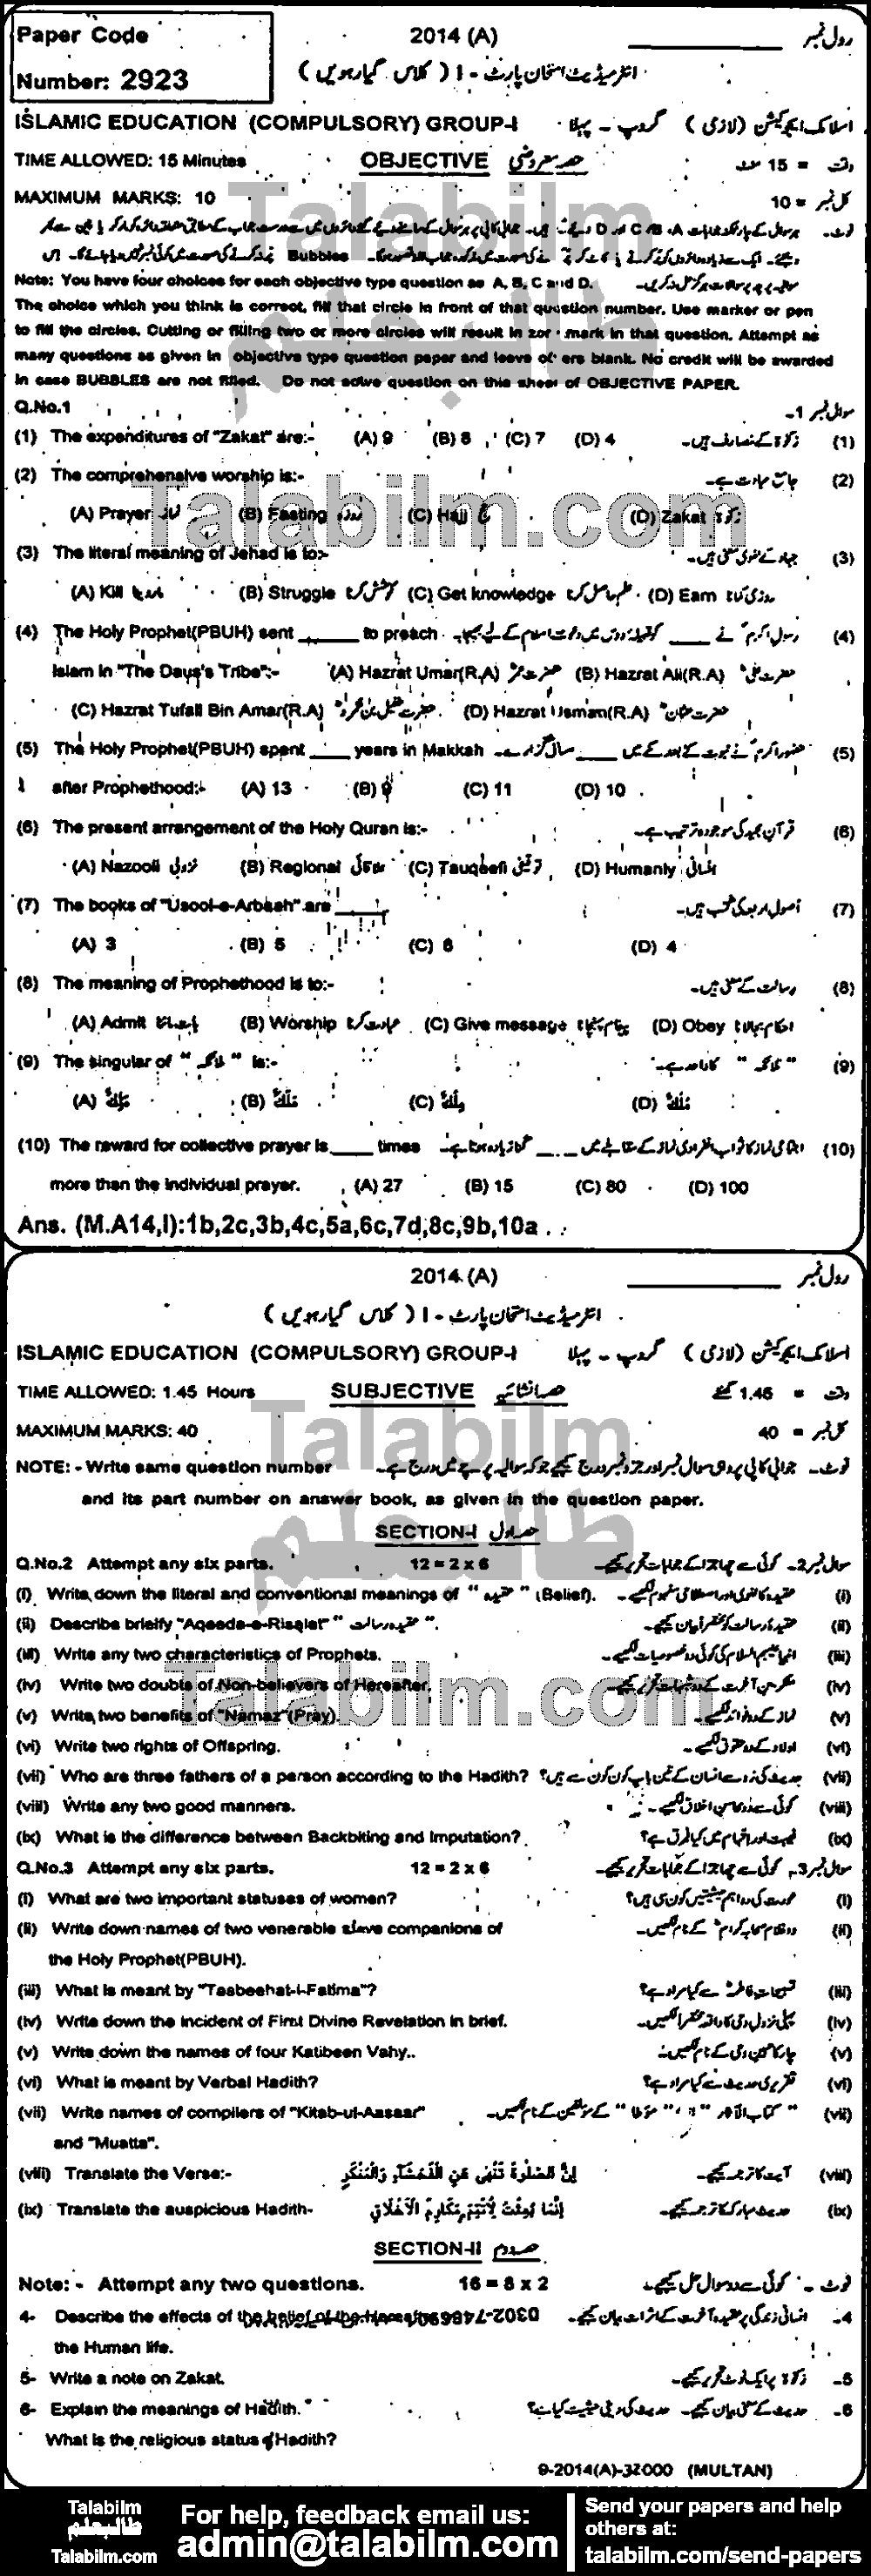 Paper Code
2014 (A)
رول نمبر
Number: 2923
انٹرمیڈیٹ امتحان پارٹ - I ( کلاس گیارہویں )
ISLAMIC EDUCATION (COMPULSORY) GROUP-I اسلامک ایجوکیشن (لازمی) گروپ - پہلا
TIME ALLOWED: 15 Minutes OBJECTIVE حصہ معروضی وقت = 15 منٹ
MAXIMUM MARKS: 10 کل نمبر = 10
Note: You have four choices for each objective type question as A, B, C and D.
The choice which you think is correct, fill that circle in front of that question number. Use marker or pen
to fill the circles. Cutting or filling two or more circles will result in mark in that question. Attempt as
many questions as given in objective type question paper and leave blank. No credit will be awarded
in case BUBBLES are not filled. Do not solve question on this sheet of OBJECTIVE PAPER.
Q.No.1 سوال نمبر 1-
(1) The expenditures of "Zakat" are:- (A) 9 (B) 8 (C) 7 (D) 4 زکوٰۃ کے مصارف ہیں۔ (1)
(2) The comprehensive worship is:- جامع عبادت ہے۔ (2)
(A) Prayer نماز (B) Fasting روزہ (C) Hajj حج (D) Zakat زکوٰۃ
(3) The literal meaning of Jehad is to:- جہاد کے لغوی معنی ہیں۔ (3)
(A) Kill (B) Struggle کوشش کرنا (C) Get knowledge علم حاصل کرنا (D) Earn روزی کمانا
(4) The Holy Prophet(PBUH) sent ______ to preach رسول اکرمؐ نے ____ کو قبیلہ دوس میں دعوت اسلام کے لیے بھیجا۔ (4)
Islam in "The Daus's Tribe":- (A) Hazrat Umar(R.A) حضرت عمرؓ (B) Hazrat Ali(R.A) حضرت علیؓ
(C) Hazrat Tufail Bin Amar(R.A) حضرت طفیل بن عمروؓ (D) Hazrat Usman(R.A) حضرت عثمانؓ
(5) The Holy Prophet(PBUH) spent ____ years in Makkah حضور اکرمؐ نے نبوت کے بعد مکے میں ____ سال گزارے۔ (5)
after Prophethood:- (A) 13 (B) 9 (C) 11 (D) 10
(6) The present arrangement of the Holy Quran is:- قرآن مجید کی موجودہ ترتیب ہے۔ (6)
(A) Nazooli نزولی (B) Regional علاقائی (C) Tauqeefi توقیفی (D) Humanly انسانی
(7) The books of "Usool-e-Arbaah" are _____ اصول اربعہ کی کتب ہیں۔ (7)
(A) 3 (B) 5 (C) 6 (D) 4
(8) The meaning of Prophethood is to:- رسالت کے معنی ہیں۔ (8)
(A) Admit بات ماننا (B) Worship عبادت کرنا (C) Give message پیغام پہنچانا (D) Obey احکام بجا لانا
(9) The singular of " ملائکہ " is:- " ملائکہ " کا واحد ہے۔ (9)
(A) (B) (C) (D)
(10) The reward for collective prayer is ____ times اجتماعی نماز کا ثواب انفرادی نماز کے مقابلے میں ____ گنا زیادہ ہوتا ہے۔ (10)
more than the individual prayer. (A) 27 (B) 15 (C) 80 (D) 100
Ans. (M.A14,I):1b,2c,3b,4c,5a,6c,7d,8c,9b,10a
2014 (A)
رول نمبر
انٹرمیڈیٹ امتحان پارٹ - I ( کلاس گیارہویں )
ISLAMIC EDUCATION (COMPULSORY) GROUP-I اسلامک ایجوکیشن (لازمی) گروپ - پہلا
TIME ALLOWED: 1.45 Hours SUBJECTIVE حصہ انشائیہ وقت = 1.45 گھنٹے
MAXIMUM MARKS: 40 کل نمبر = 40
NOTE: - Write same question number نوٹ۔ جوابی کاپی پر وہی سوال نمبر اور جزو نمبر درج کیجیے جو کہ سوالیہ پرچے میں درج ہے۔
and its part number on answer book, as given in the question paper.
SECTION-I حصہ اول
Q.No.2 Attempt any six parts. 12 = 2 x 6 سوال نمبر 2۔ کوئی سے چھ اجزا کے جوابات تحریر کیجیے۔
(i) Write down the literal and conventional meanings of " عقیدہ " (Belief). عقیدہ کا لغوی اور اصطلاحی مفہوم لکھیے۔ (i)
(ii) Describe briefly "Aqeeda-e-Risalat" " عقیدہ رسالت ". عقیدہ رسالت کو مختصراً بیان کیجیے۔ (ii)
(iii) Write any two characteristics of Prophets. انبیا علیہم السلام کی کوئی دو خصوصیات لکھیے۔ (iii)
(iv) Write two doubts of Non-believers of Hereafter. منکرین آخرت کے دو شبہات تحریر کیجیے۔ (iv)
(v) Write two benefits of "Namaz"(Pray). نماز کے دو فوائد لکھیے۔ (v)
(vi) Write two rights of Offspring. اولاد کے دو حقوق لکھیے۔ (vi)
(vii) Who are three fathers of a person according to the Hadith? حدیث کی رو سے انسان کے تین باپ کون کون سے ہیں؟ (vii)
(viii) Write any two good manners. کوئی سے دو محاسن اخلاق لکھیے۔ (viii)
(ix) What is the difference between Backbiting and Imputation? غیبت اور اتہام میں کیا فرق ہے؟ (ix)
Q.No.3 Attempt any six parts. 12 = 2 x 6 سوال نمبر 3۔ کوئی سے چھ اجزا کے جوابات تحریر کیجیے۔
(i) What are two important statuses of women? عورت کی دو اہم حیثیتیں کون سی ہیں؟ (i)
(ii) Write down names of two venerable slave companions of دو غلام صحابہ کرامؓ کے نام لکھیں۔ (ii)
the Holy Prophet(PBUH).
(iii) What is meant by "Tasbeehat-i-Fatima"? تسبیحات فاطمہؓ سے کیا مراد ہے؟ (iii)
(iv) Write down the incident of First Divine Revelation in brief. پہلی نزول وحی کا واقعہ مختصراً لکھیں۔ (iv)
(v) Write down the names of four Katibeen Vahy.. چار کاتبین وحی کے نام لکھیں۔ (v)
(vi) What is meant by Verbal Hadith? تقریری حدیث سے کیا مراد ہے؟ (vi)
(vii) Write names of compilers of "Kitab-ul-Aasaar" " کتاب الآثار " ، " موطا " کے مؤلفین کے نام لکھیں۔ (vii)
and "Muatta".
(viii) Translate the Verse:- إِنَّ الصَّلٰوةَ تَنْهٰى عَنِ الْفَحْشَآءِ وَالْمُنْكَرِ آیت کا ترجمہ کیجیے۔ (viii)
(ix) Translate the auspicious Hadith- إِنَّمَا بُعِثْتُ لِأُتَمِّمَ مَكَارِمَ الْأَخْلَاقِ حدیث مبارکہ کا ترجمہ کیجیے۔ (ix)
SECTION-II حصہ دوم
Note: - Attempt any two questions. 16 = 8 x 2 نوٹ۔ کوئی سے دو سوال حل کیجیے۔
4- Describe the effects of the belief of the Hereafter انسانی زندگی پر عقیدہ آخرت کے اثرات بیان کیجیے۔ 4-
the Human life.
5- Write a note on Zakat. زکوٰۃ پر ایک نوٹ تحریر کیجیے۔ 5-
6- Explain the meanings of Hadith. حدیث کے معنی بیان کیجیے۔ حدیث کی دینی حیثیت کیا ہے؟ 6-
What is the religious status of Hadith?
9-2014(A)-32000 (MULTAN)
Talabilm
طالبعلم
Talabilm.com
For help, feedback email us:
admin@talabilm.com
Send your papers and help
others at:
talabilm.com/send-papers